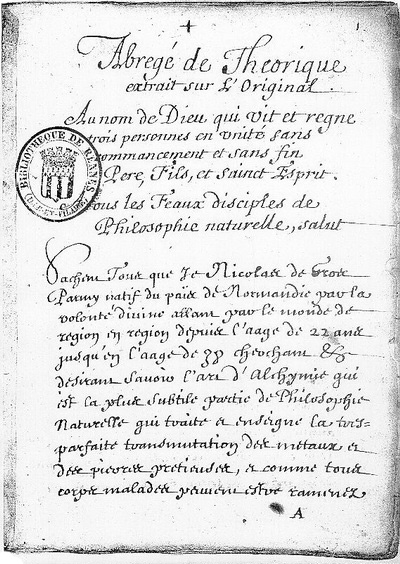 1
Abregé de Theorique
extrait sur L'Original
Au nom de Dieu qui vit et regne
trois personnes en vnité sans
commancement et sans fin
Pere, Fils, et Sainct Esprit.
Tous les Feaux disciples de
Philosophie naturelle, salut
BIBLIOTHEQUE DE RENNES
(ILLE-ET-VILAINE)
Sachent Tous que Je Nicolas de Gros
Parmy natif du païs de Normandie par la
volonté divine allant par le monde de
region en region depuis l'aage de 22 ans
jusqu'en l'aage de cherchant &
desirant savoir l'art d'Alchymie qui
est la plus subtile partie de Philosophie
Naturelle qui traite et enseigne la tres=
parfaite transmutation des metaux et
des pierres pretieuses, e comme tous
corps malades peuvent estre ramenez
A